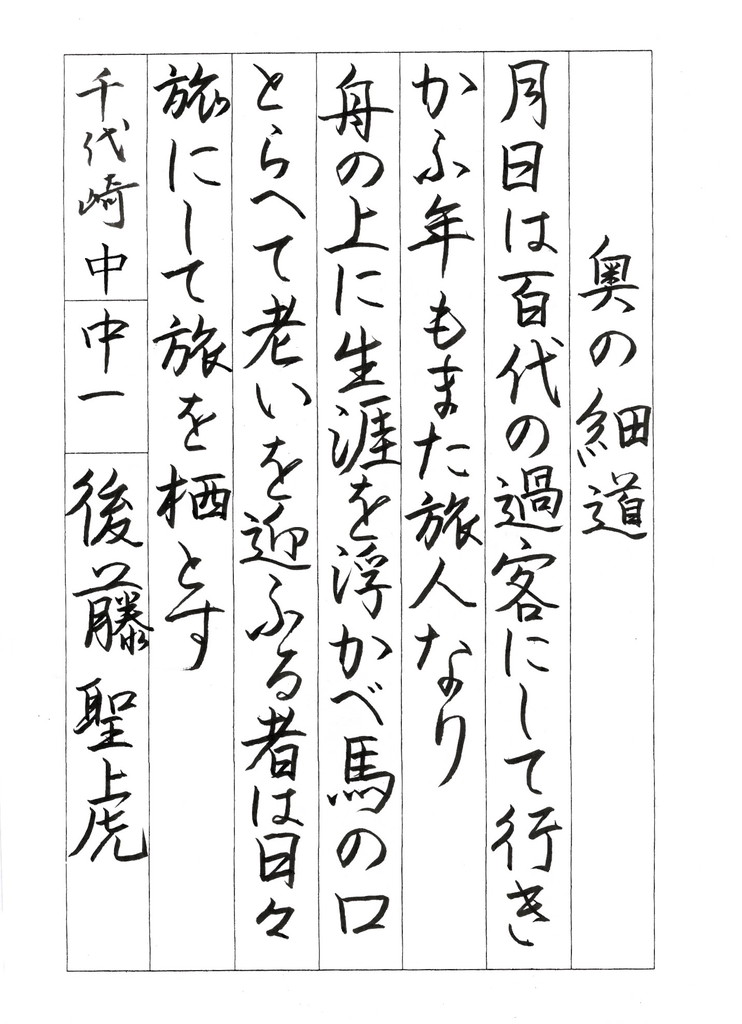 奥の細道
月日は百代の過客にして行き
かふ年もまた旅人なり
舟の上に生涯を浮かべ馬の口
とらへて老いを迎ふる者は日々
旅にして旅を栖とす
千代崎中 中一 後藤 聖上虎